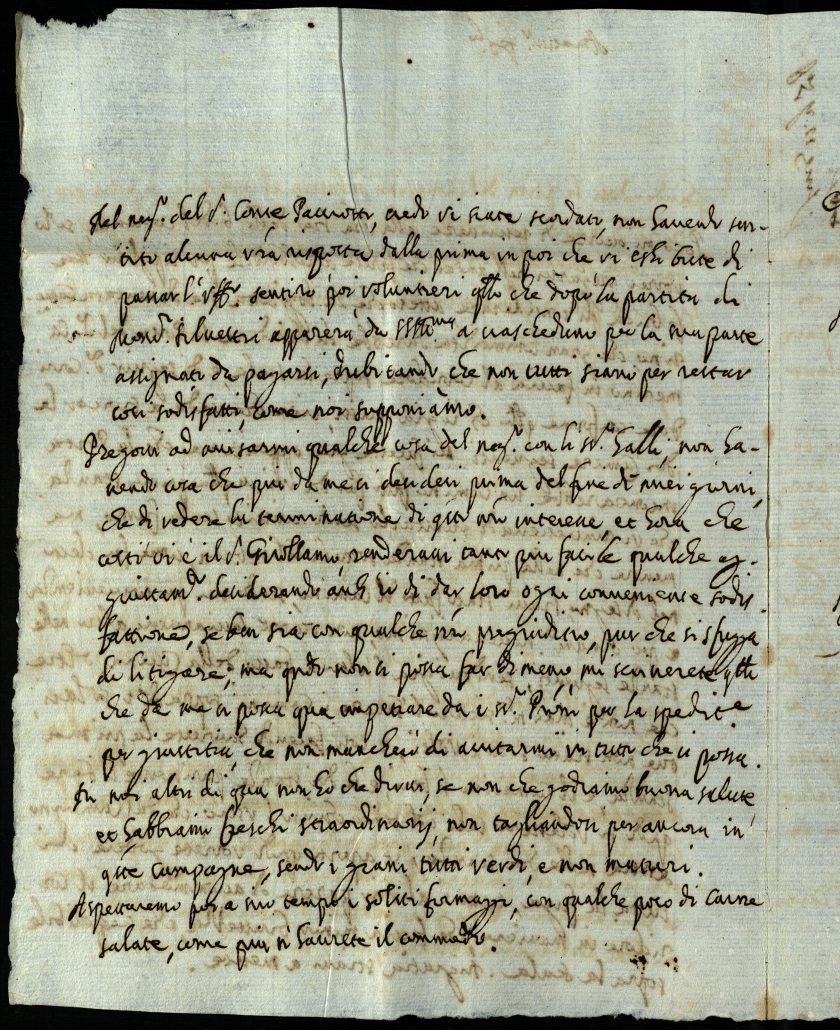 Del neg.º del S.r Conte Paciotti, credo vi siate scordati, non havendo sen-
tito alcuna v͞ra risposta dalla prima in poi che vi esibiste di
passar l'uff.º sentirò poi voluntieri q͞llo che dopo la partita di
Mons.r Silvestri apparerà da a ciascheduno per la sua parte
assignati da pagarsi, dubitando che non tutti siano per restar
così sodisfatti, come noi supponiamo.
Pregovi ad avisarmi qualche cosa del neg.º con li SS.ri Galli, non ha-
vendo cosa che più da me si desideri prima del fine de miei giorni,
che di vedere la terminatione di q͞sto n͞ro interesse, et hora che
costì vi è il S.r Girollamo, renderavi tanto più facile qualche ag-
giustam.to desiderando anch'io di dar loro ogni conveniente sodis-
fattione, se ben sia con qualche n͞ro pregiuditio, pur che si sfugga
di litigare; ma q͞ndo non si possa far di meno mi scriverete q͞llo
che da me si possa qua impetrare da i SS.ri P͞roni per la spedit.e
per giustitia, che non mancherò di aiutarmi in tutto che si possa.
Di noi altri di qua non ho che dirvi, se non che godiamo buona salute
et habbiamo freschi straordinarij, non tagliandosi per ancora in
q͞ste campagne, sendo i grani tutti verdi, e non maturi.
Aspettaremo poi a suo tempo i soliti formaggi, con qualche poco di carne
salate, come più n'haurete il commodo.